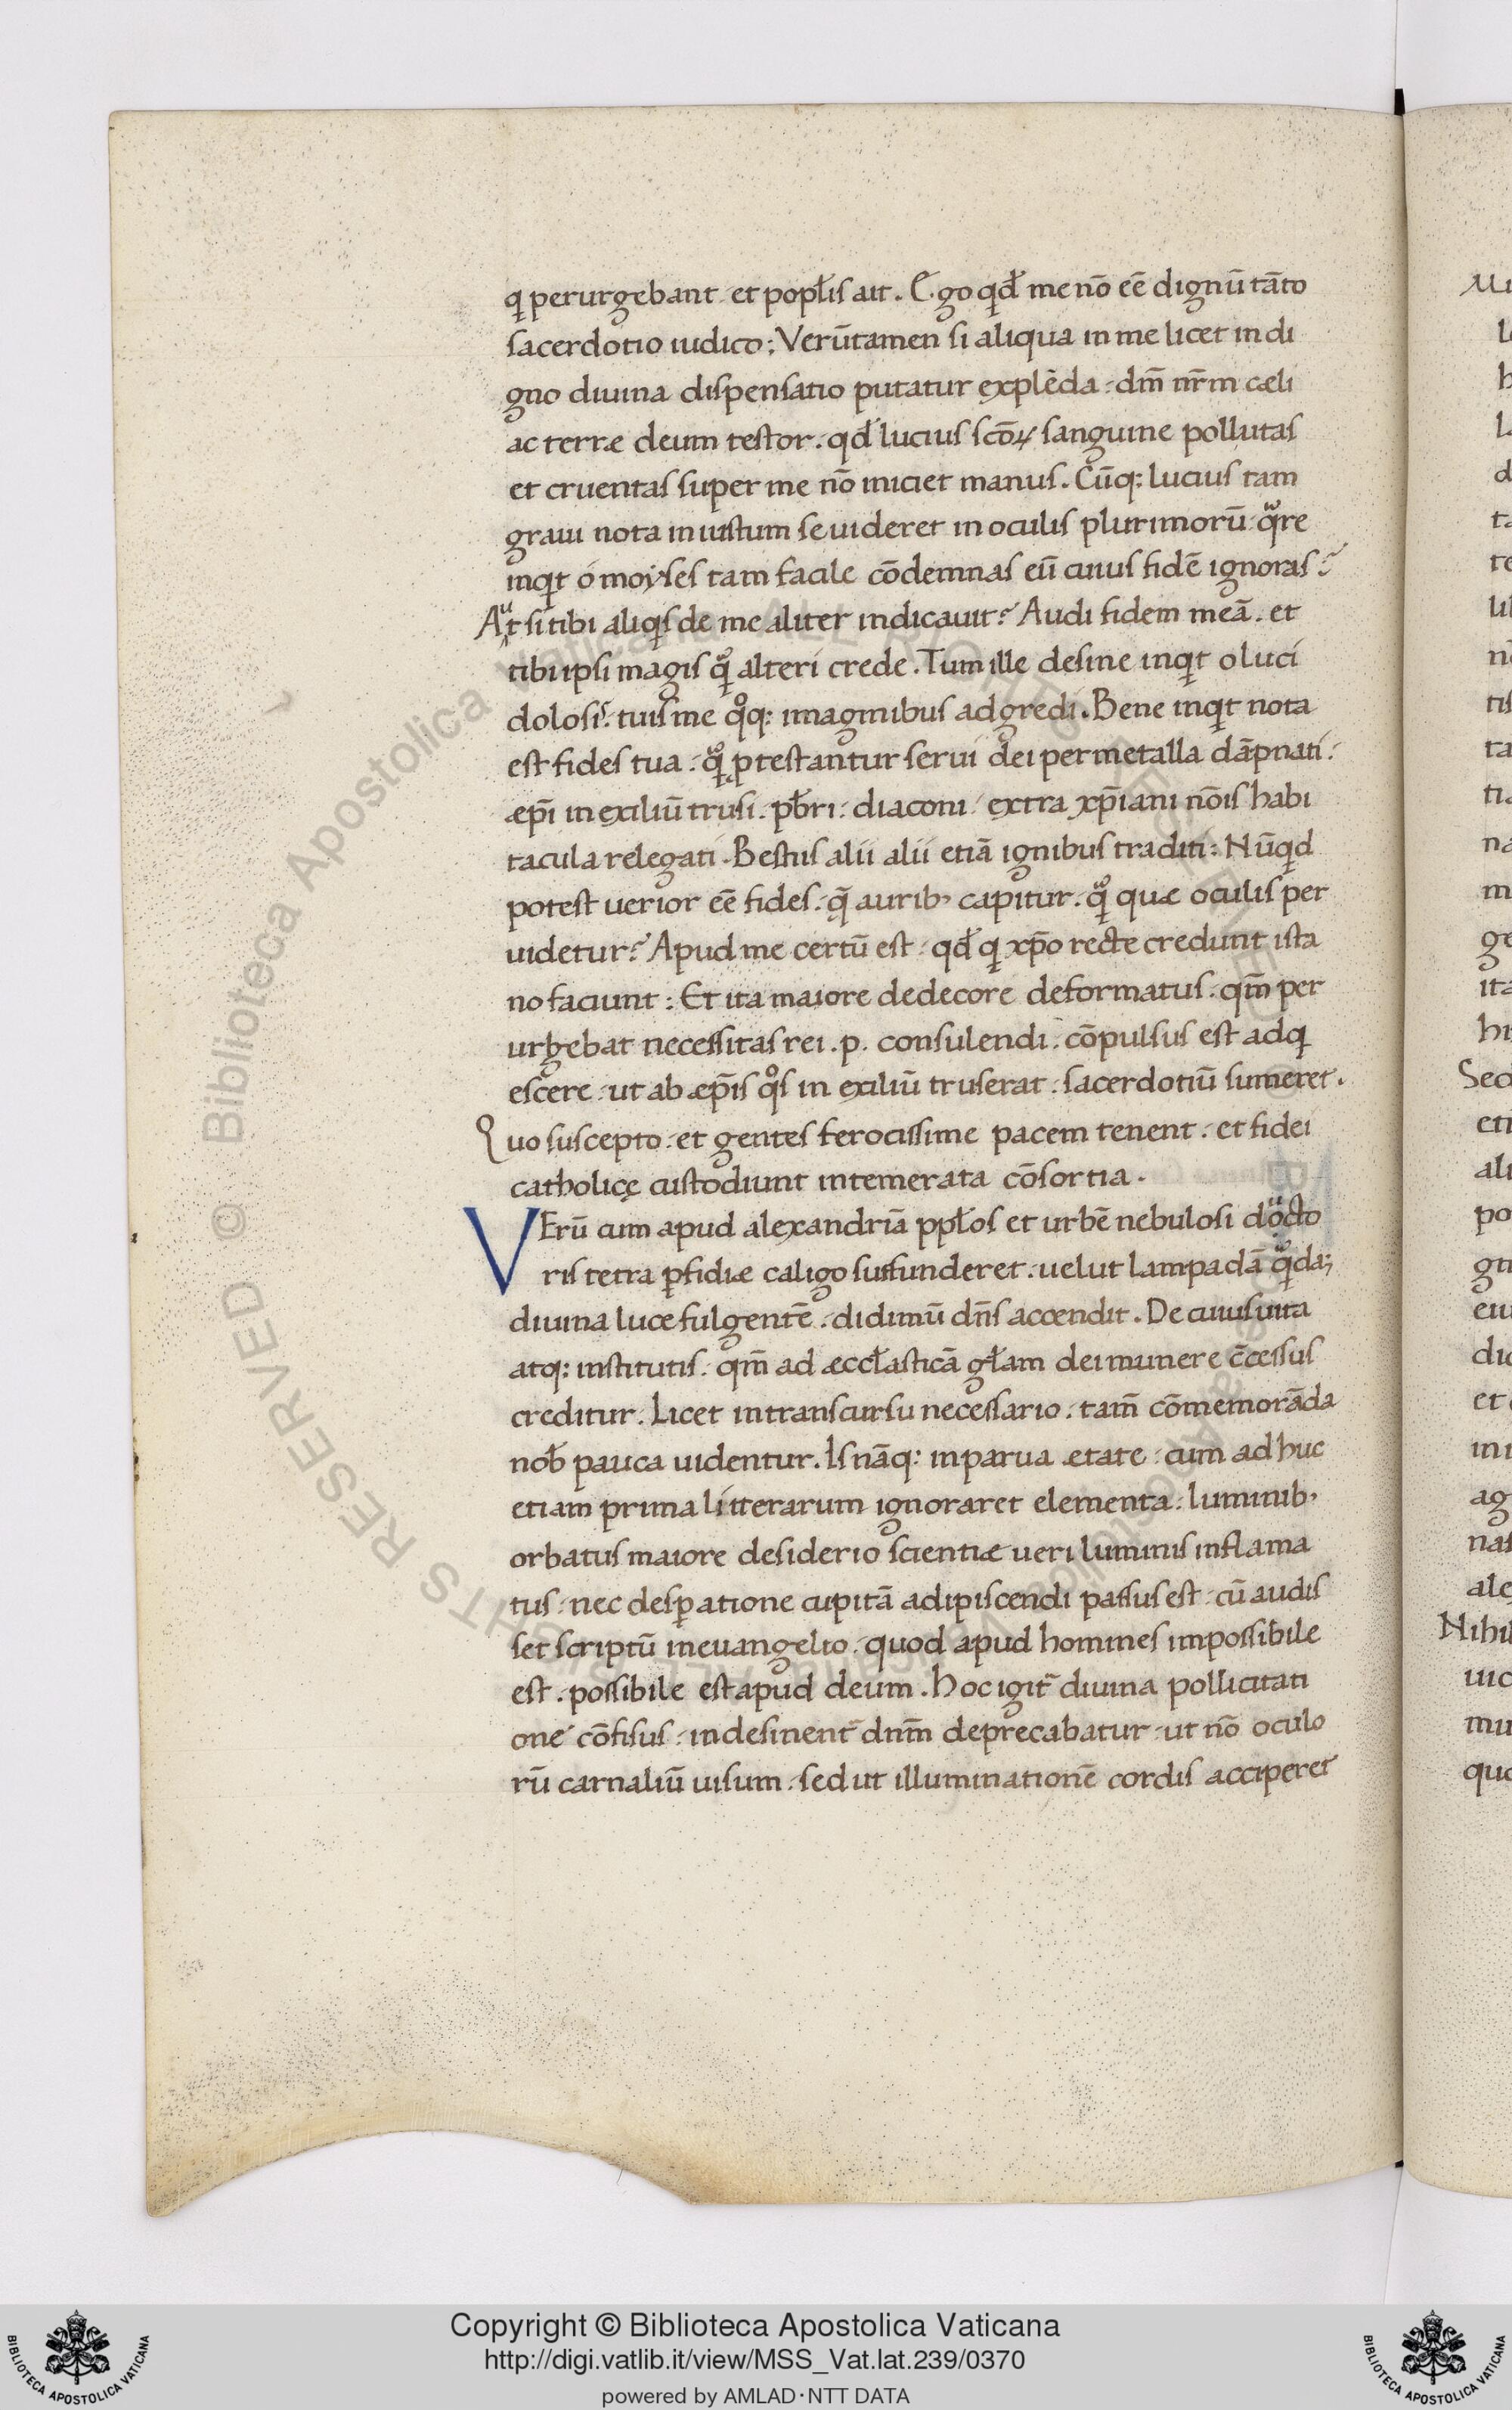 q perurgebant et popl̄is ait. Ego qd̄ me nō eē dignū tāto
sacerdotio iudico; Verūtamen si aliqua in me licet indi
gno diuina dispensatio putatur explēda. dm̄ nr̄m cæli
ac terræ deum testor. qd̄ lucius scōꝝ sanguine pollutas
et cruentas super me nō iniciet manus. Cūq; lucius tam
graui nota inuistum se uideret in oculis plurimorū qͣre
inqt o moyses tam facile cōdemnas eū cuius fidē ignoras?
Aut si tibi aliqs de me aliter indicauit? Audi fidem meā. et
tibi ipsi magis qͣ alteri crede. Tum ille desine inqt o luci
dolosis. tuis me qͦq; imaginibus adgredi. Bene inqt nota
est fides tua. qͣ ptestantur serui dei per metalla dāpnati.
æpī in exiliū trusi. pb̄ri. diaconi extra xp̄iani nōis habi
tacula relegati. Bestiis alii alii etiā ignibus traditi. Nūqd
potest uerior eē fides. q̄ aurib, capitur. qͣ quæ oculis per
uidetur? Apud me certū est. qd̄ q xp̄o recte credunt ista
no faciunt: Et ita maiore dedecore deformatus. qm̄ per
urgebat necessitas rei .p. consulendi. cōpulsus est adq
escere. ut ab æpīs qͦs in exiliū truserat. sacerdotiū sumeret.
Quo suscepto. et gentes ferocissime pacem tenent. et fidei
catholicę custodiunt intemerata cōsortia.
VErū cum apud alexandriā ppl̄os et urbē nebulosi docto
ris tetra ꝑfidiæ caligo suffunderet. uelut lampadā qͣda;
diuina luce fulgentē. didimū dn̄s accendit. De cuius uita
atq; institutis. qm̄ ad æccl̄asticā gl̄am dei munere c̄cessus
creditur. Licet in transcursu necessario. tam̄ cōmemorāda
nob̄ pauca uidentur. Is nāq; in parua ætate. cum ad huc
etiam prima litterarum ignoraret elementa. luminib,
orbatus maiore desiderio scientiæ ueri luminis inflama
tus. nec desꝑatione cupitā adipiscendi passus est. cū audis
set scriptū in euangelio. quod apud homines impossibile
est. possibile est apud deum. Hoc igit̄ diuina pollicitati
one cōfisus. indesinent̄ dnm̄ deprecabatur. ut nō oculo
rū carnaliū uisum. sed ut illuminationē cordis acciperet
Copyright © Biblioteca Apostolica Vaticana
http://digi.vatlib.it/view/MSS_Vat.lat.239/0370
powered by AMLAD·NTT DATA